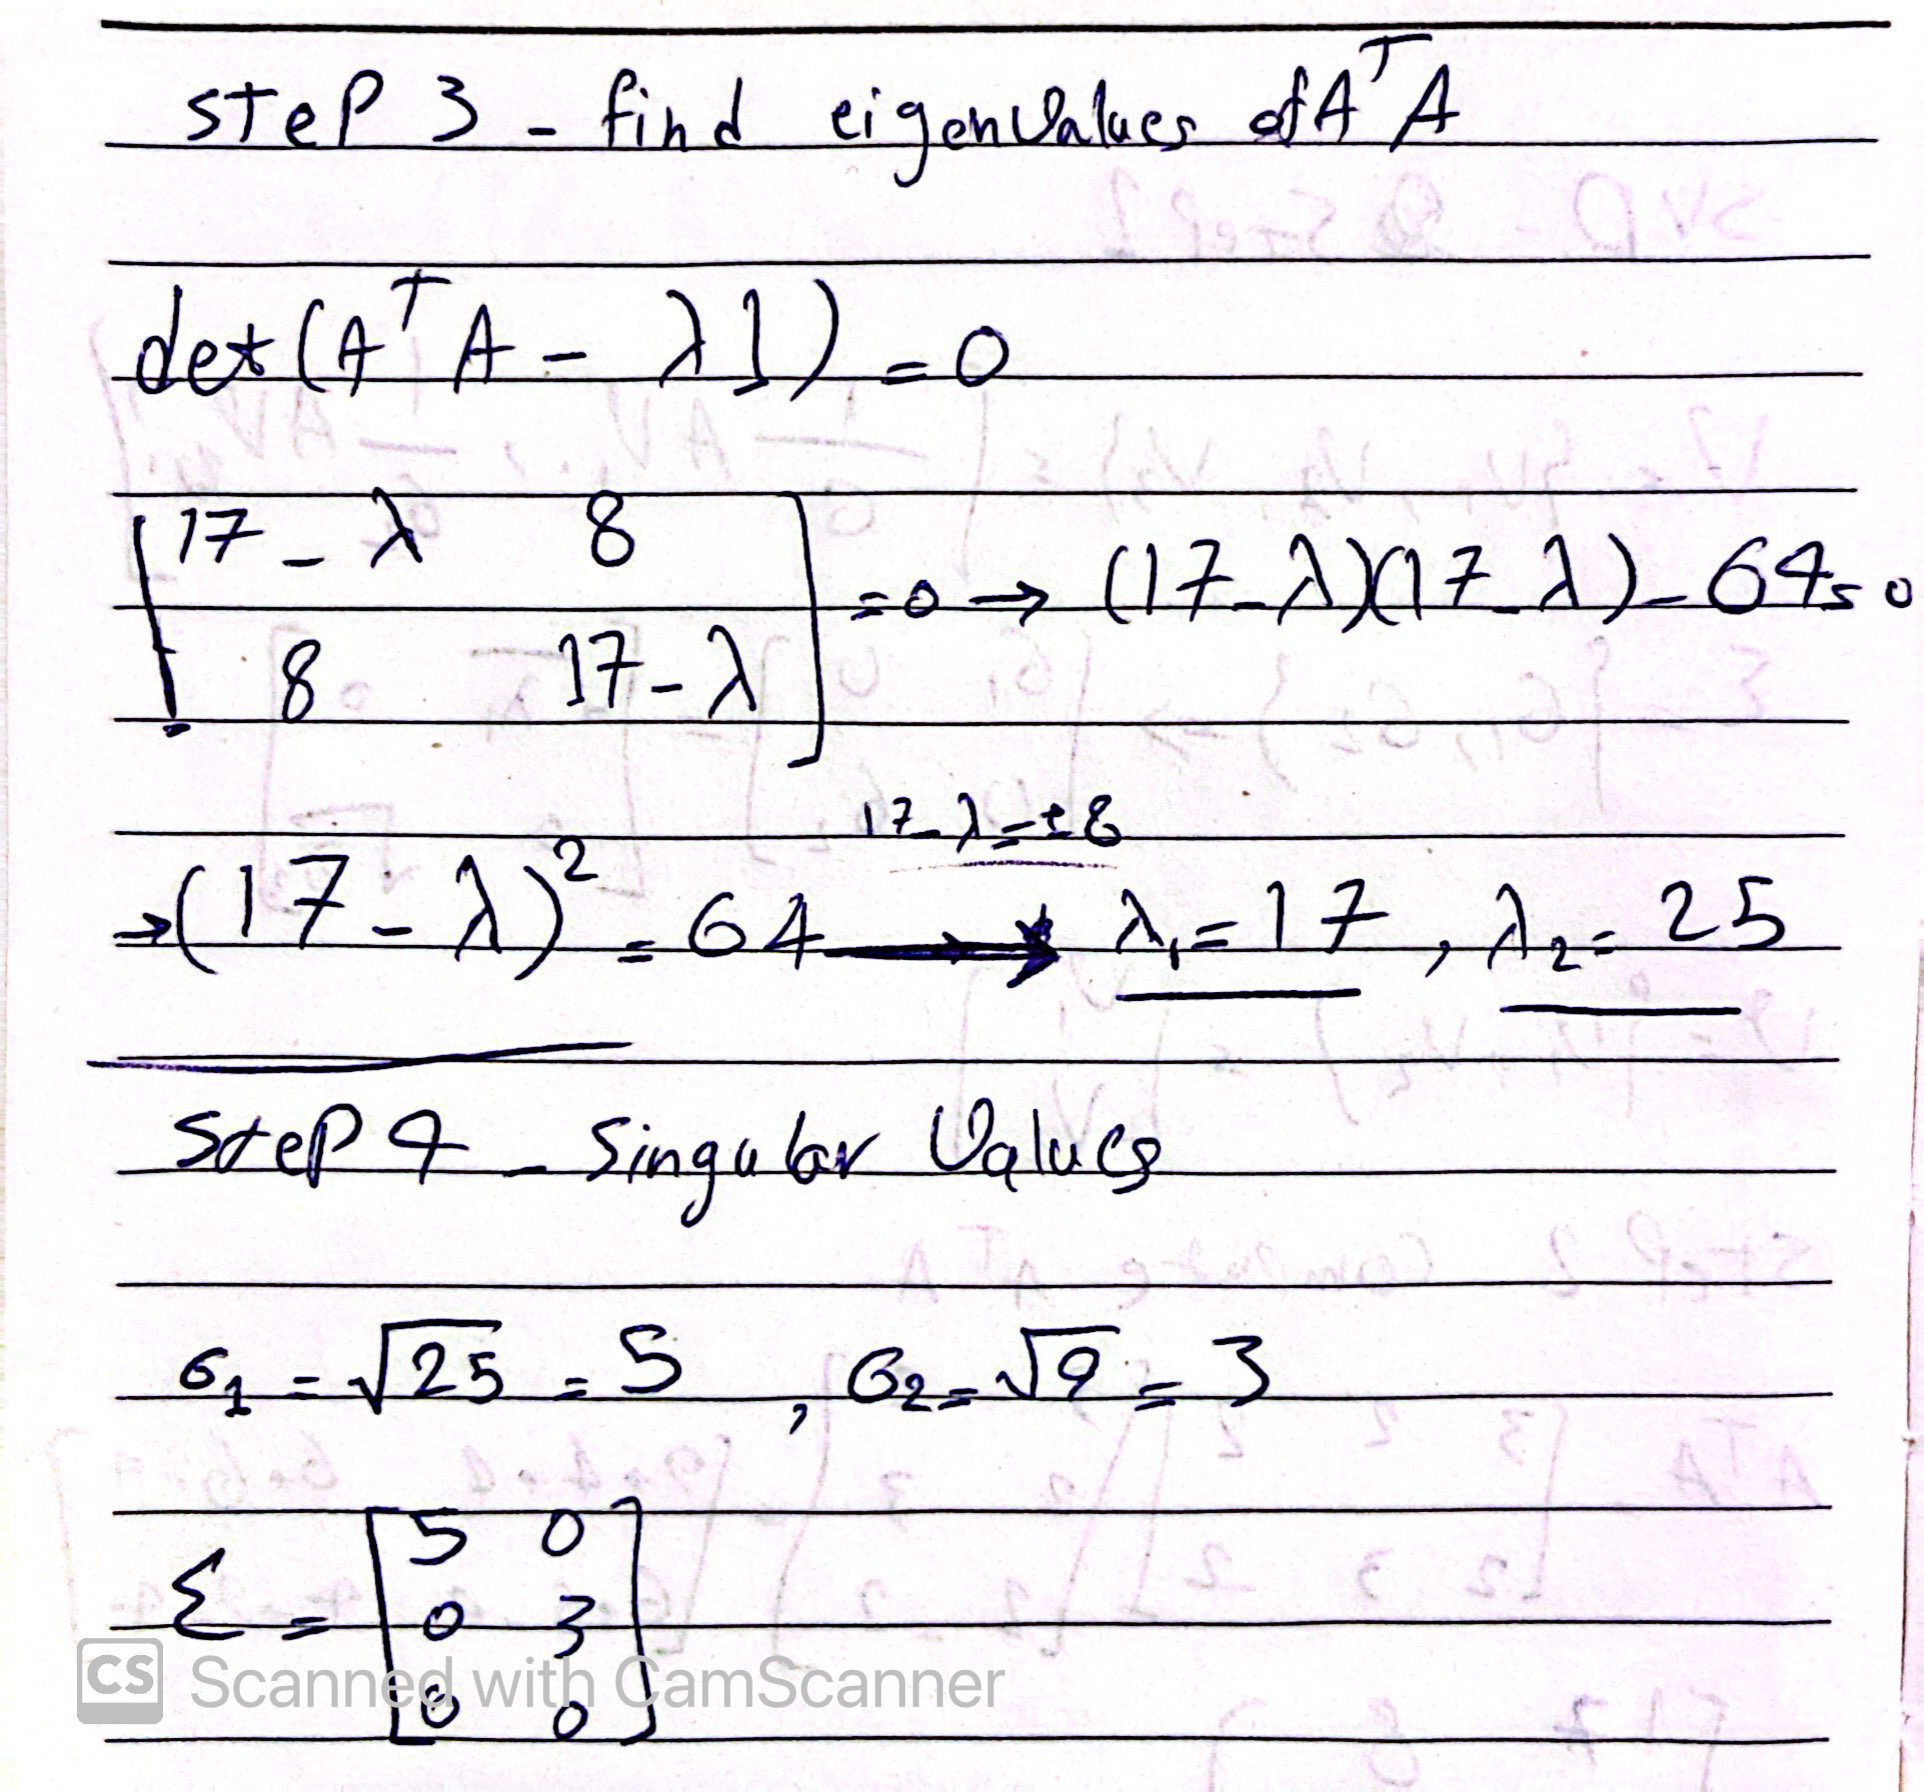 steP 3 - find eigenvalues of AᵀA
det(AᵀA - λI) = 0
[17 - λ 8
8 17 - λ] = 0 → (17 - λ)(17 - λ) - 64 = 0
17 - λ = ± 8
→ (17 - λ)² = 64 → λ₁ = 17 , λ₂ = 25
steP 4 - Singular Values
σ₁ = √25 = 5 , σ₂ = √9 = 3
Σ = [5 0
0 3
0 0]
CS Scanned with CamScanner